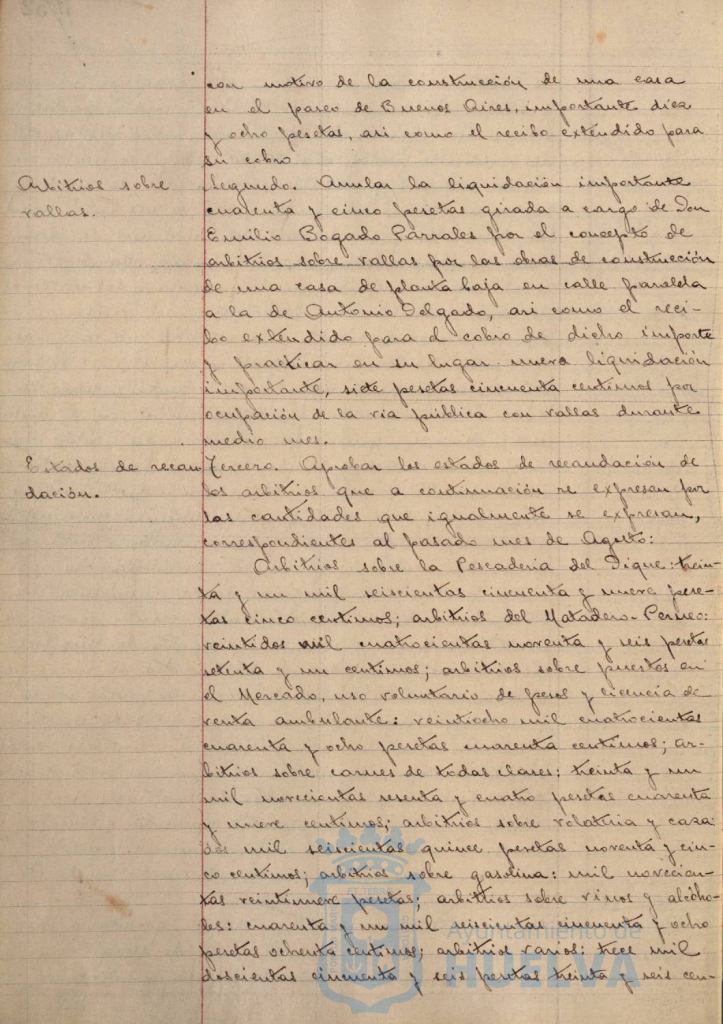 con motivo de la construcción de una casa
en el paseo de Buenos Aires, importante diez
y ocho pesetas, asi como el recibo extendido para
su cobro
Arbitrios sobre
vallas.
Segundo. Anular la liquidación importante
cuarenta y cinco pesetas girada a cargo de Don
Emilio Bogado Parrales por el concepto de
arbitrios sobre vallas por las obras de construcción
de una casa de planta baja en calle paralela
a la de Antonio Delgado, asi como el reci-
bo extendido para el cobro de dicho importe
y practicar en su lugar nueva liquidación
importante, siete pesetas cincuenta centimos por
ocupación de la via pública con vallas durante
medio mes.
Estados de recau
dación.
Tercero. Aprobar los estados de recaudación de
los arbitrios que a continuación se expresan por
las cantidades que igualmente se expresan,
correspondientes al pasado mes de Agosto:
Arbitrios sobre la Pescaderia del Dique: trein-
ta y un mil seiscientas cincuenta y nueve pese-
tas cinco centimos; arbitrios del Matadero-Perneo:
veintidos mil cuatrocientas noventa y seis pesetas
setenta y un centimos; arbitrios sobre puestos en
el Mercado, uso voluntario de pesos y licencia de
venta ambulante: veintiocho mil cuatrocientas
cuarenta y ocho pesetas cuarenta centimos; ar-
bitrios sobre carnes de todas clases: treinta y un
mil novecientas sesenta y cuatro pesetas cuarenta
y nueve centimos; arbitrios sobre volateria y caza:
dos mil seiscientas quince pesetas noventa y cin-
co centimos; arbitrios sobre gasolina: mil novecien-
tas veintinueve pesetas; arbitrios sobre vinos y alcoho-
les: cuarenta y un mil seiscientas cincuenta y ocho
pesetas ochenta centimos; arbitrios varios: trece mil
doscientas cincuenta y seis pesetas treinta y seis cen-
Ayuntamiento de
HUELVA